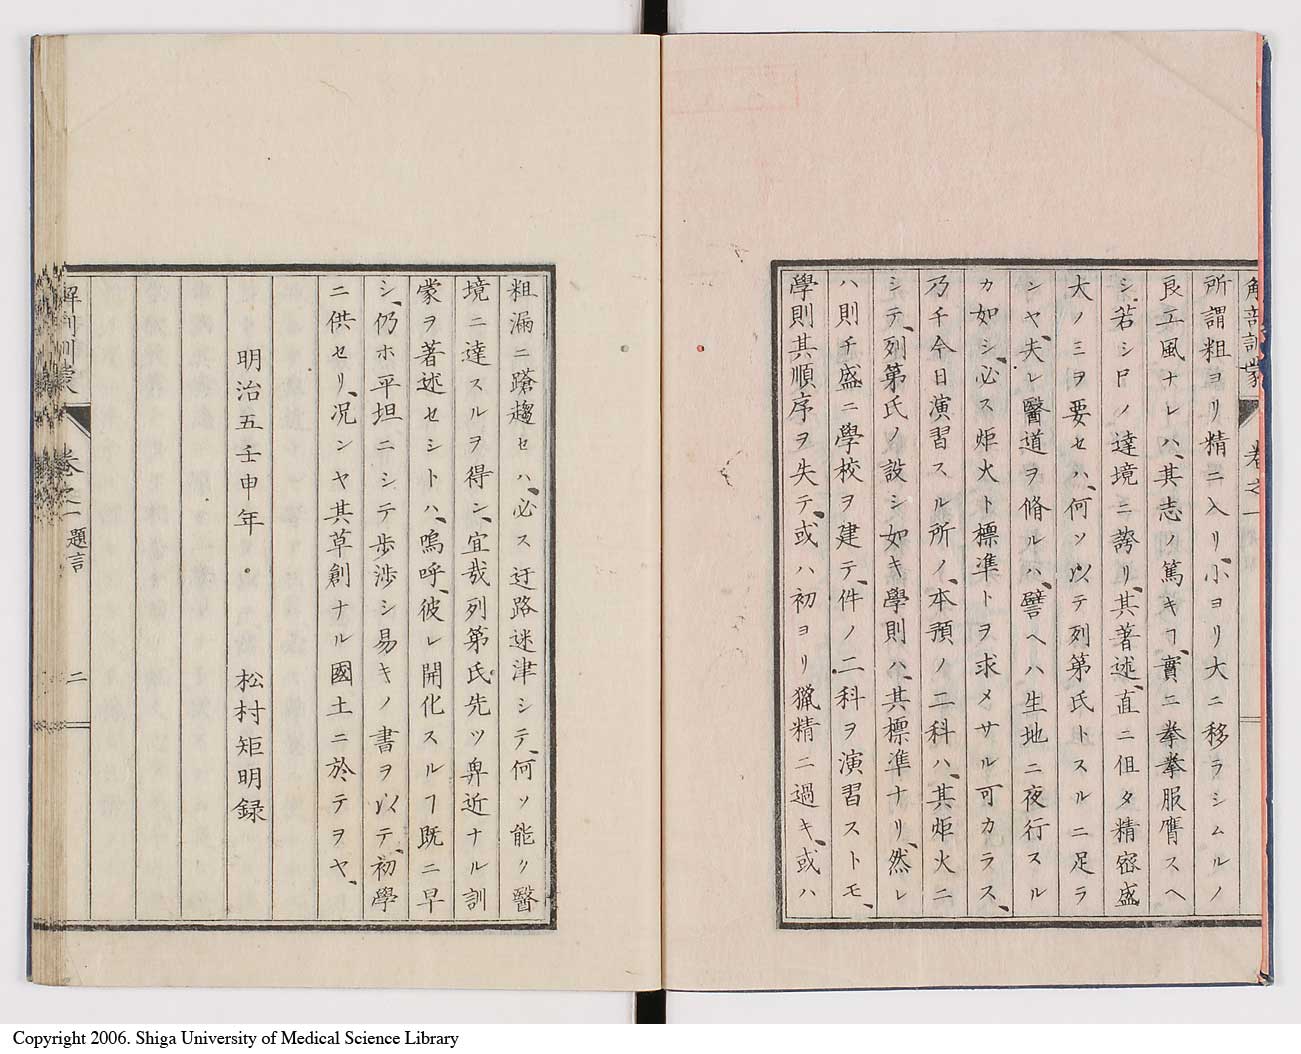 解剖訓蒙 卷之一
所謂粗ヨリ精ニ入リ、小ヨリ大ニ移ラシムルノ
良工風ナレハ、其志ノ篤キヿ、實ニ拳拳服膺スヘ
シ、若シ尸ノ達境ニ誇リ、其著述、直ニ但タ精密盛
大ノミヲ要セハ、何ソ以テ列第氏トスルニ足ラ
ンヤ、夫レ醫道ヲ脩ルハ、譬ヘハ生地ニ夜行スル
カ如シ、必ス炬火ト標準トヲ求メサル可カラス、
乃チ今日演習スル所ノ、本預ノ二科ハ、其炬火ニ
シテ、列第氏ノ設シ如キ學則ハ、其標準ナリ、然レ
ハ則チ盛ニ學校ヲ建テ、件ノ二科ヲ演習ストモ、
學則其順序ヲ失テ、或ハ初ヨリ獵精ニ過キ、或ハ
粗漏ニ蹌趨セハ、必ス迂路迷津シテ、何ソ能ク醫
境ニ達スルヲ得ン、宜哉列第氏先ツ卑近ナル訓
蒙ヲ著述セシトハ、嗚呼、彼レ開化スルヿ既ニ早
シ、仍ホ平坦ニシテ歩渉シ易キノ書ヲ以テ、初學
ニ供セリ、况ンヤ其草創ナル國土ニ於テヲヤ、
明治五壬申年・ 松村矩明録
解剖訓蒙 卷之一 題言 二
Copyright 2006. Shiga University of Medical Science Library